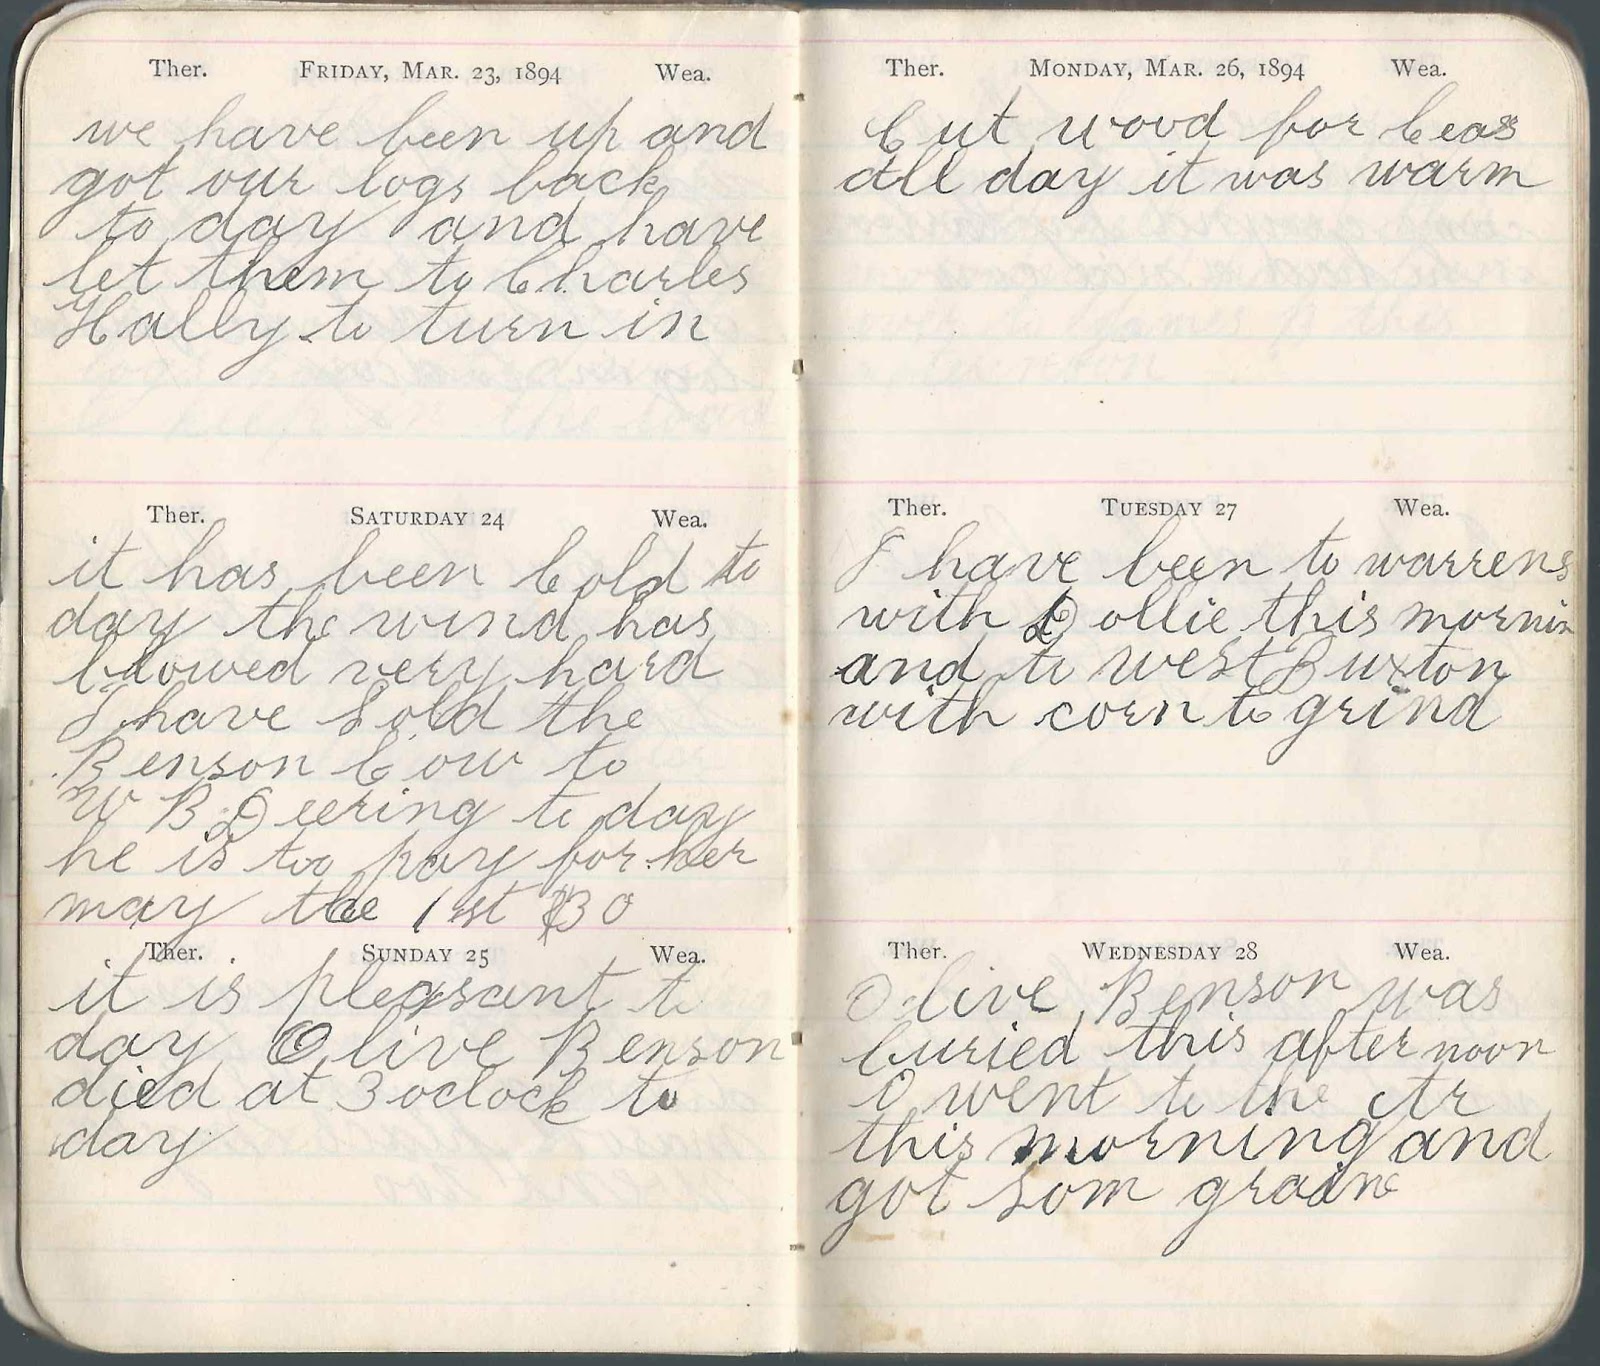 Ther. FRIDAY, MAR. 23, 1894 Wea.
we have been up and
got our logs back
to day and have
let them to Charles
Hally to turn in
Ther. SATURDAY 24 Wea.
it has been Cold to
day the wind has
blowed very hard
I have Sold the
Benson Cow to
W B Deering to day
he is too pay for her
may the 1 st $30
Ther. SUNDAY 25 Wea.
it is pleasant to
day Olive Benson
died at 3 oclock to
day
Ther. MONDAY, MAR. 26, 1894 Wea.
Cut wood for Ceas
all day it was warm
Ther. TUESDAY 27 Wea.
I have been to warrens
with Dollie this mornin
and to west Buxton
with corn to grind
Ther. WEDNESDAY 28 Wea.
Olive Benson was
buried this after noon
I went to the
this morning and
got som graine